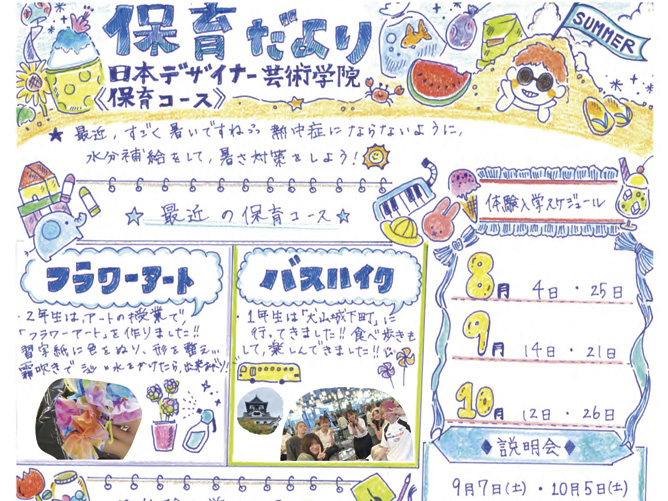 保育だより
SUMMER
日本デザイナー芸術学院
《保育コース》
★最近、すごく暑いですね 熱中症にならないように、
水分補給をして、暑さ対策をしよう!
☆最近の保育コース☆
フラワーアート
・2年生は、アートの授業で、
「フラワーアート」を作りました!!
習字紙に色をぬり、形を整え
霧吹きで 水をかけたら、出来あがり
バスハイク
・1年生は「犬山城下町」に
行ってきました!!食べ歩きも
して、楽しんできました!!
体験入学スケジュール
8月 4日・25日
9月 14日・21日
10月 12日・26日
◆説明会◆
9月7日(土)・10月5日(土)